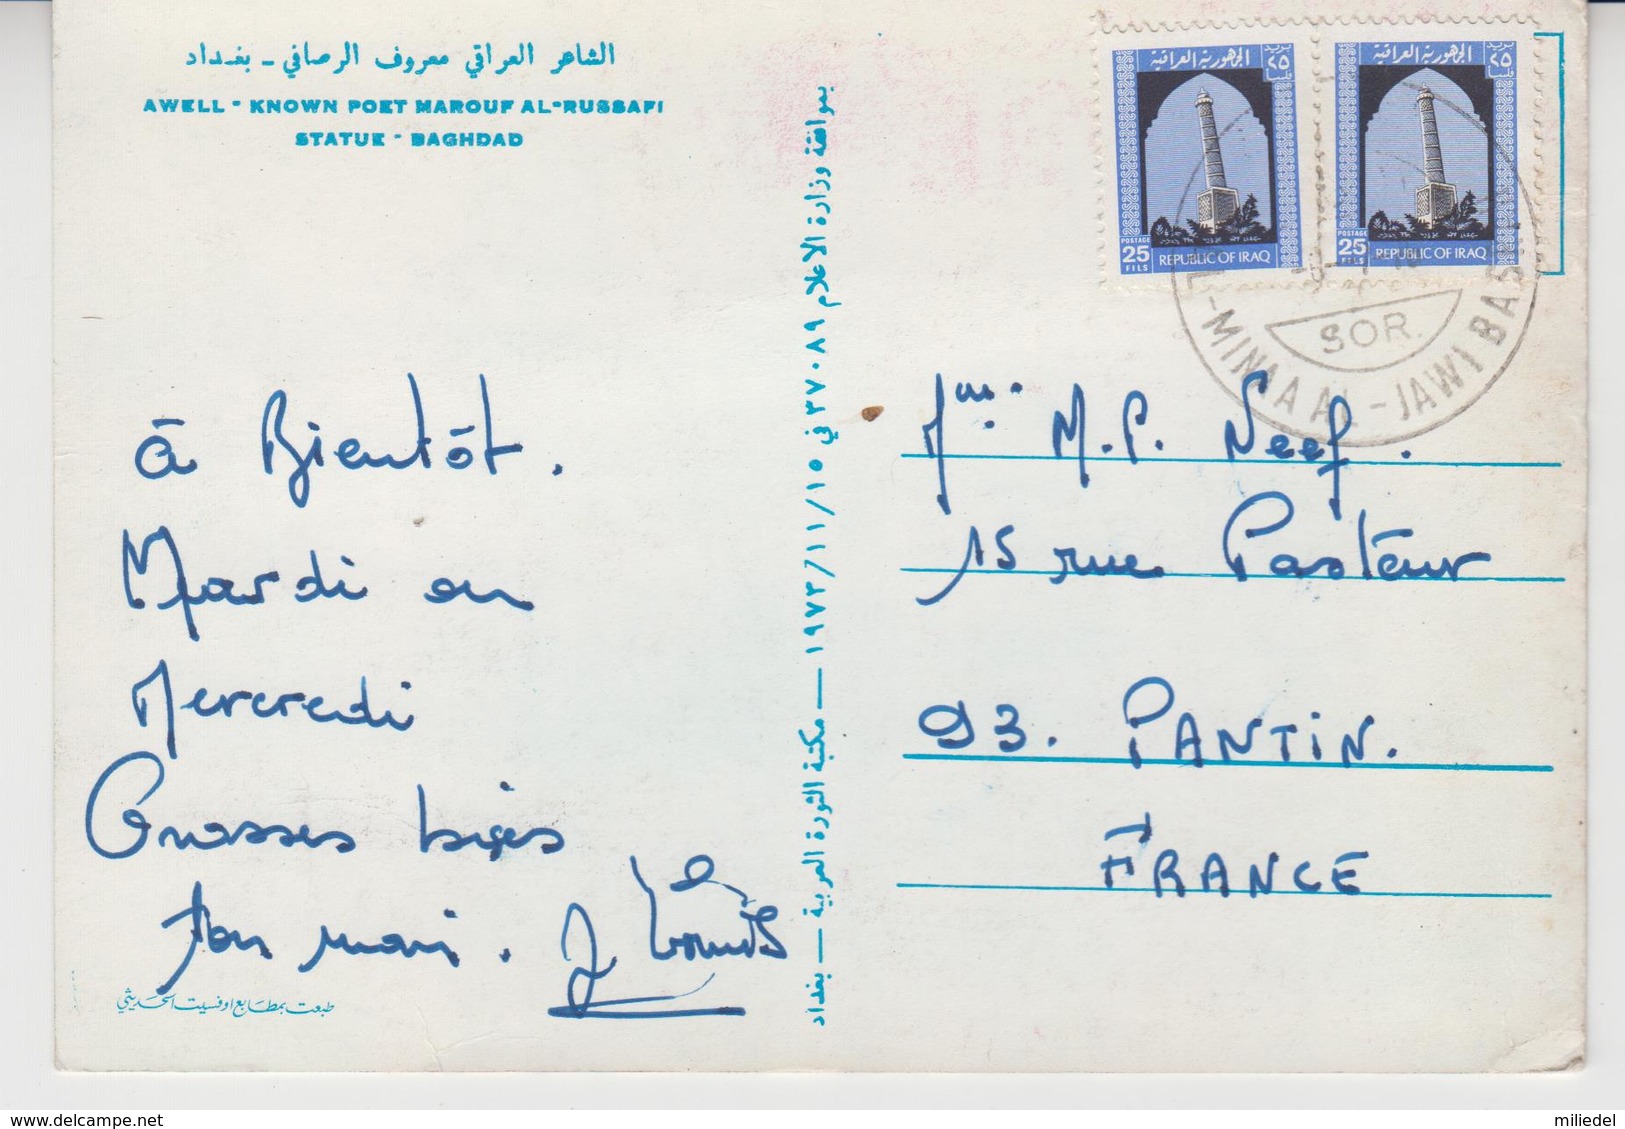 الشاعر العراقي معروف الرصافي - بغداد
AWELL - KNOWN POET MAROUF AL-RUSSAFI
STATUE - BAGHDAD
à Bientôt.
Mardi ou
Mercredi
Grosses bises
Ton mari.
طبعت بمطابع اوفسيت الحديثي
بموافقة وزارة الاعلام ٣٧٠٨٩ في ١٩٧٣/١١/١٥ — مكتبة الثورة العربية — بغداد
الجمهورية العراقية
بريد
٢٥
فلسا
POSTAGE
25
FILS
REPUBLIC OF IRAQ
الجمهورية العراقية
بريد
٢٥
فلسا
25
FILS
REPUBLIC OF IRAQ
SOR.
AL-MINAA AL-JAWI BAS
Mme. M.P. Neef.
15 rue Pasteur
93. PANTIN.
FRANCE
miliedel